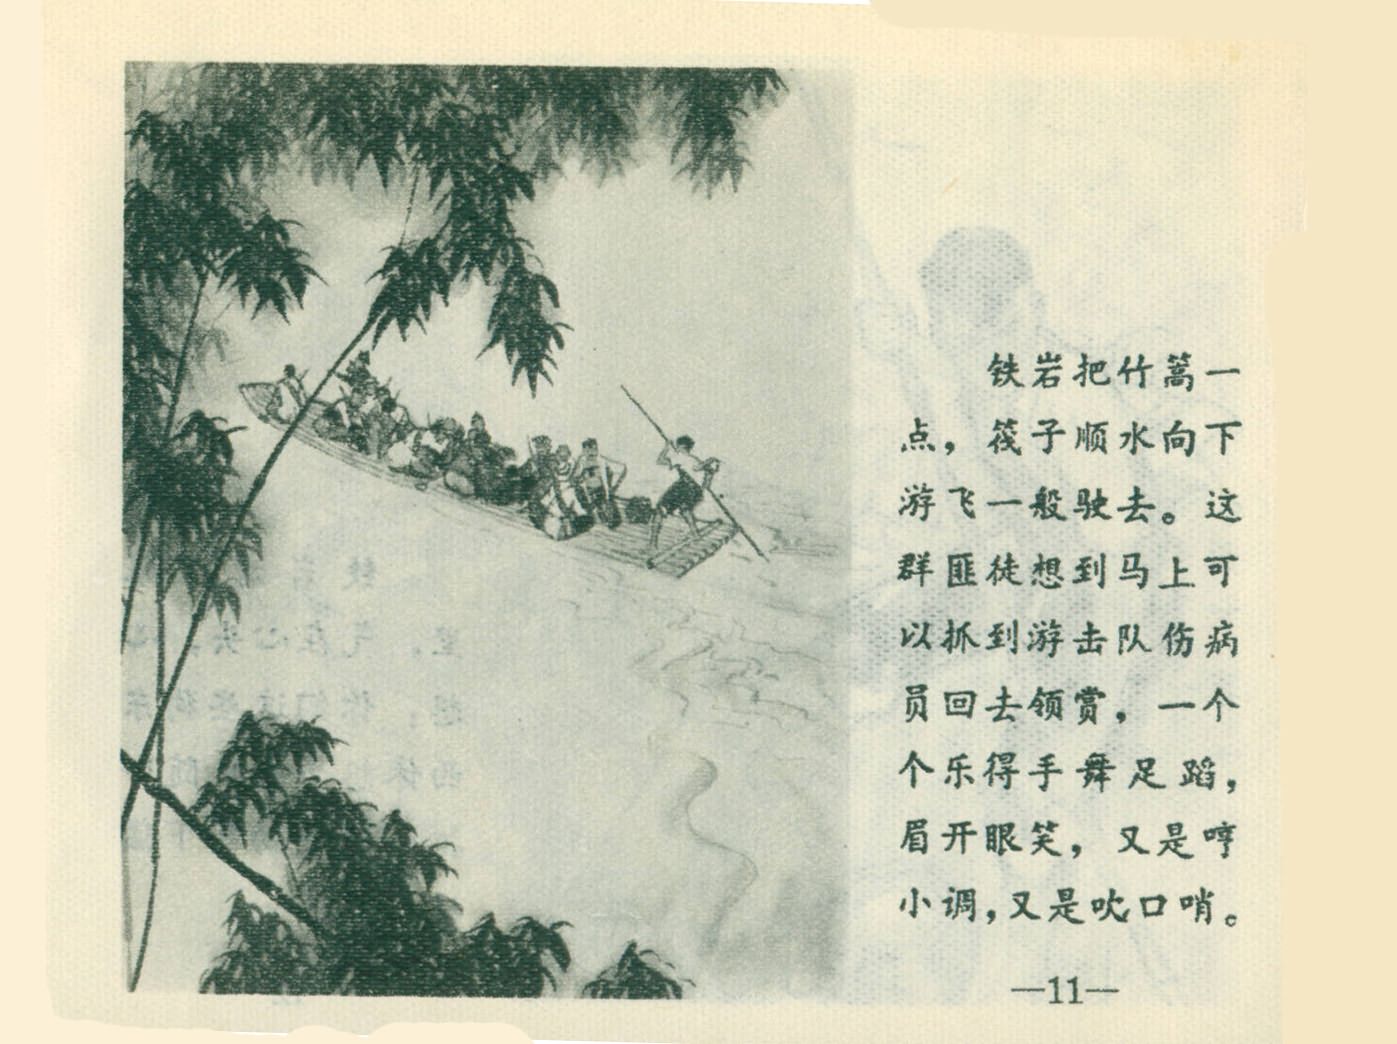 铁岩把竹篙一
点，筏子顺水向下
游飞一般驶去。这
群匪徒想到马上可
以抓到游击队伤病
员回去领赏，一个
个乐得手舞足蹈，
眉开眼笑，又是哼
小调，又是吹口哨。
—11—